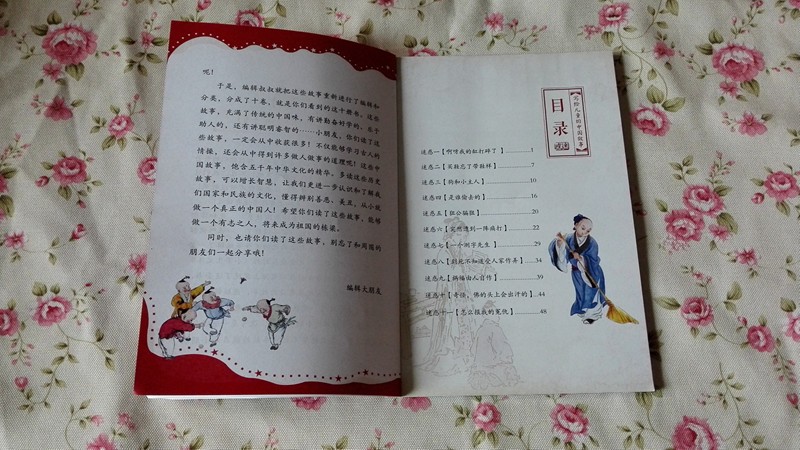 呢！
于是，编辑叔叔就把这些故事重新进行了编辑和
分类，分成了十卷，就是你们看到的这十册书。这些
故事，充满了传统的中国味，有讲勤奋好学的、乐于
助人的，还有讲聪明睿智的……小朋友，你们读了这
些故事，一定会从中收获很多！不仅能够学习古人的
情操，还会从中得到许多做人做事的道理呢！这些中
国故事，饱含五千年中华文化的精华，多读这些历史
故事，可以增长智慧，让我们更进一步认识和了解我
们国家和民族的文化，懂得辨别善恶、美丑，从小就
做一个真正的中国人！希望你们读了这些故事，能够
做一个有志之人，将来成为祖国的栋梁。
同时，也请你们读了这些故事，别忘了和周围的
朋友们一起分享哦！
编辑大朋友
写给儿童的中国故事
目录
迷惑一【啊呀我的缸打碎了】 1
迷惑二【买鞋忘了带鞋样】 7
迷惑三【狗和小主人】 10
迷惑四【是谁偷去的】 16
迷惑五【狙公骗狙】 20
迷惑六【突然遭到一阵痛打】 22
迷惑七【一个测字先生】 29
迷惑八【到死不知道受人家作弄】 34
迷惑九【祸福由人合作】 39
迷惑十【奇怪，佛的头上会出汁的】 44
迷惑十一【怎么报我的冤仇】 48